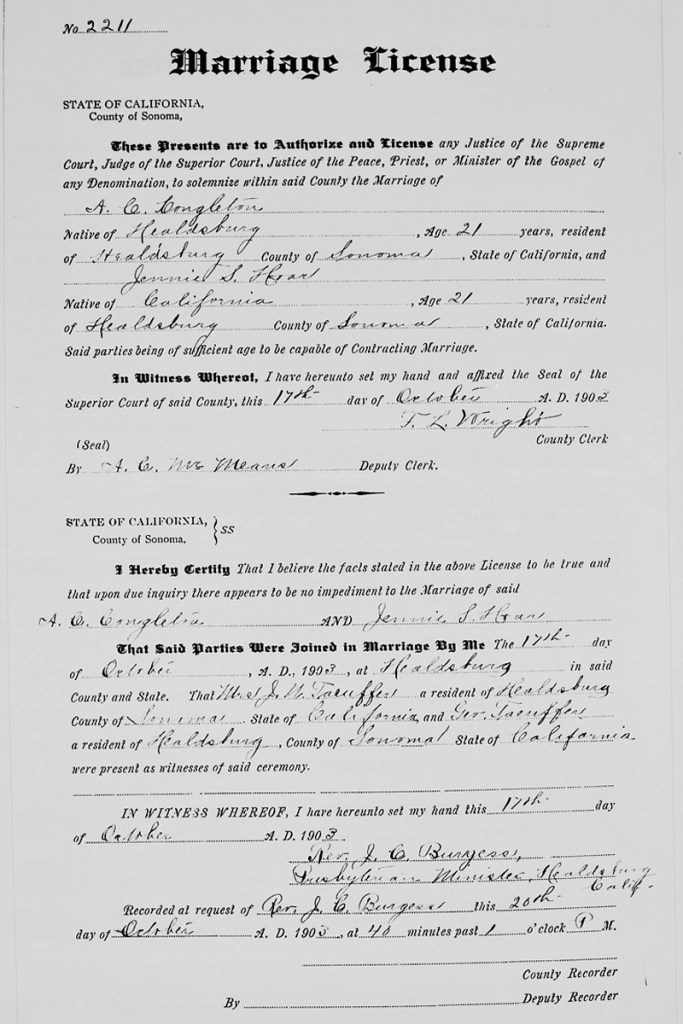 No 2211
Marriage License
STATE OF CALIFORNIA,
County of Sonoma,
These Presents are to Authorize and License any Justice of the Supreme
Court, Judge of the Superior Court, Justice of the Peace, Priest, or Minister of the Gospel of
any Denomination, to solemnize within said County the Marriage of
A. C. Congleton
Native of Healdsburg, Age 21 years, resident
of Healdsburg County of Sonoma, State of California, and
Jennie S. Hoar
Native of California, Age 21 years, resident
of Healdsburg County of Sonoma, State of California.
Said parties being of sufficient age to be capable of Contracting Marriage.
In Witness Whereof, I have hereunto set my hand and affixed the Seal of the
Superior Court of said County, this 17th day of October A. D. 1903
T. L. Wright
County Clerk
(Seal)
By A. C. Mc Means Deputy Clerk.
STATE OF CALIFORNIA, } ss
County of Sonoma,
I Hereby Certify That I believe the facts stated in the above License to be true and
that upon due inquiry there appears to be no impediment to the Marriage of said
A. C. Congleton AND Jennie S. Hoar
That Said Parties Were Joined in Marriage By Me The 17th day
of October, A. D., 1903, at Healdsburg in said
County and State. That Mrs J. W. a resident of Healdsburg
County of Sonoma State of California, and Geo. a resident of Healdsburg, County of Sonoma State of California
were present as witnesses of said ceremony.
IN WITNESS WHEREOF, I have hereunto set my hand this 17th day
of October A. D. 1903
Rev. J. C. Burgess,
Presbyterian Minister, Healdsburg
Calif.
Recorded at request of Rev. J. C. Burgess this 20th
day of October A. D. 1903, at 40 minutes past 1 o'clock P M.
County Recorder
By Deputy Recorder